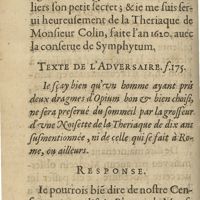 liers son petit secret; & ie me suis ser
ui heureusement de la Theriaque de
Monsieur Colin, faite l'an 1620. auec
la conserue de Symphytum.
TEXTE DE L'ADVERSAIRE. f. 175.
Ie sçay bien qu'vn homme ayant pris
deux dragmes d'Opium bon & bien choisi,
ne sera preserué du sommeil par la grosseur
d'vne Noisette de la Theriaque de dix ans
susmentionnée, ni de celle qui se fait à Ro-
me, ou ailleurs.
RESPONSE.
Ie pourrois biē dire de nostre Cen-